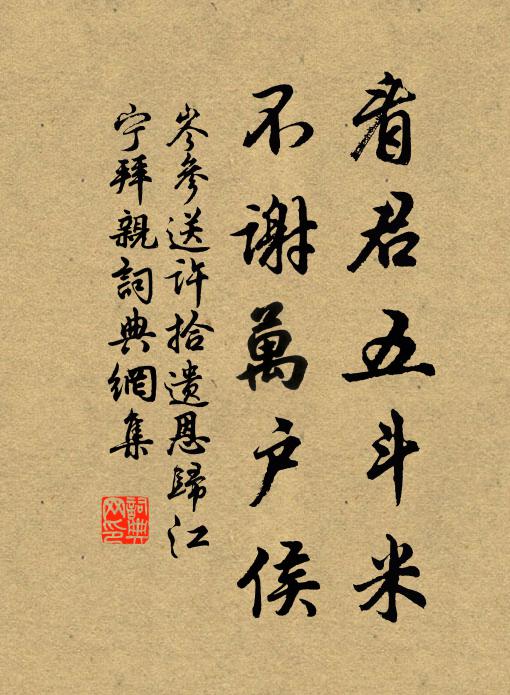 看君五斗米
不谢萬户侯
岑參送许拾遗恩歸江
宁拜親詞典網集
詞典
网印